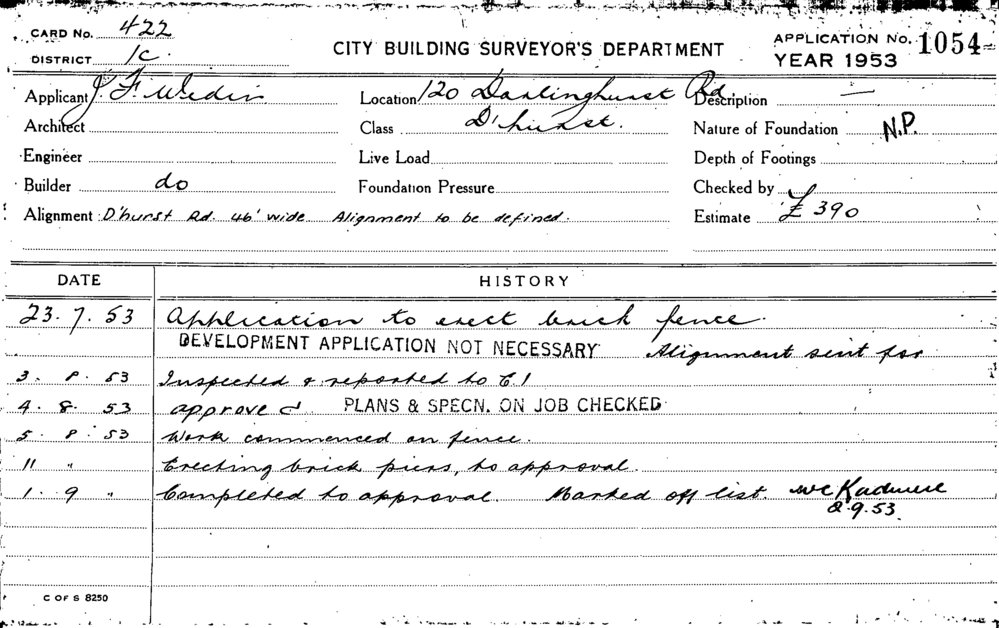 CARD No. 422
DISTRICT 1C.
CITY BUILDING SURVEYOR'S DEPARTMENT
APPLICATION No. 1054
YEAR 1953
Applicant J. F. Wedin Location 120 Darlinghurst Rd Description —
Architect Class D'hurst. Nature of Foundation N.P.
Engineer Live Load Depth of Footings
Builder do Foundation Pressure Checked by
Alignment D'hurst Rd. 46' wide Alignment to be defined. Estimate £390
DATE HISTORY
23.7.53 Application to erect brick fence.
DEVELOPMENT APPLICATION NOT NECESSARY Alignment sent for
3.8.53 Inspected & reported to C.I
4.8.53 approved PLANS & SPECN. ON JOB CHECKED
5.8.53 Work commenced on fence.
11 " Erecting brick piers, to approval.
1.9 " Completed to approval. Marked off list
.9.53.
C OF S 8250